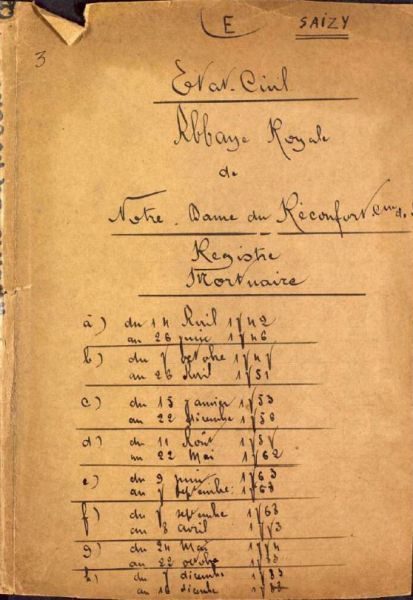 E SAIZY
3
Etat-Civil
Abbaye Royale
de
Notre-Dame du Réconfort Cne de
Registre
Mortuaire
a) du 14 Avril 1742
au 26 juin 1746
b) du 7 octobre 174
au 26 Avril 1751
c) du 15 janvier 1753
au 22 décembre 1758
d) du 11 Août 175
au 22 Mai 1762
e) du 9 juin 1763
au 7 septembre 1768
f) du 7 septembre 1768
au 8 avril 1773
g) du 24 Mai 1774
au 22 octobre
h) du 7 décembre 1783
au 16 décembre